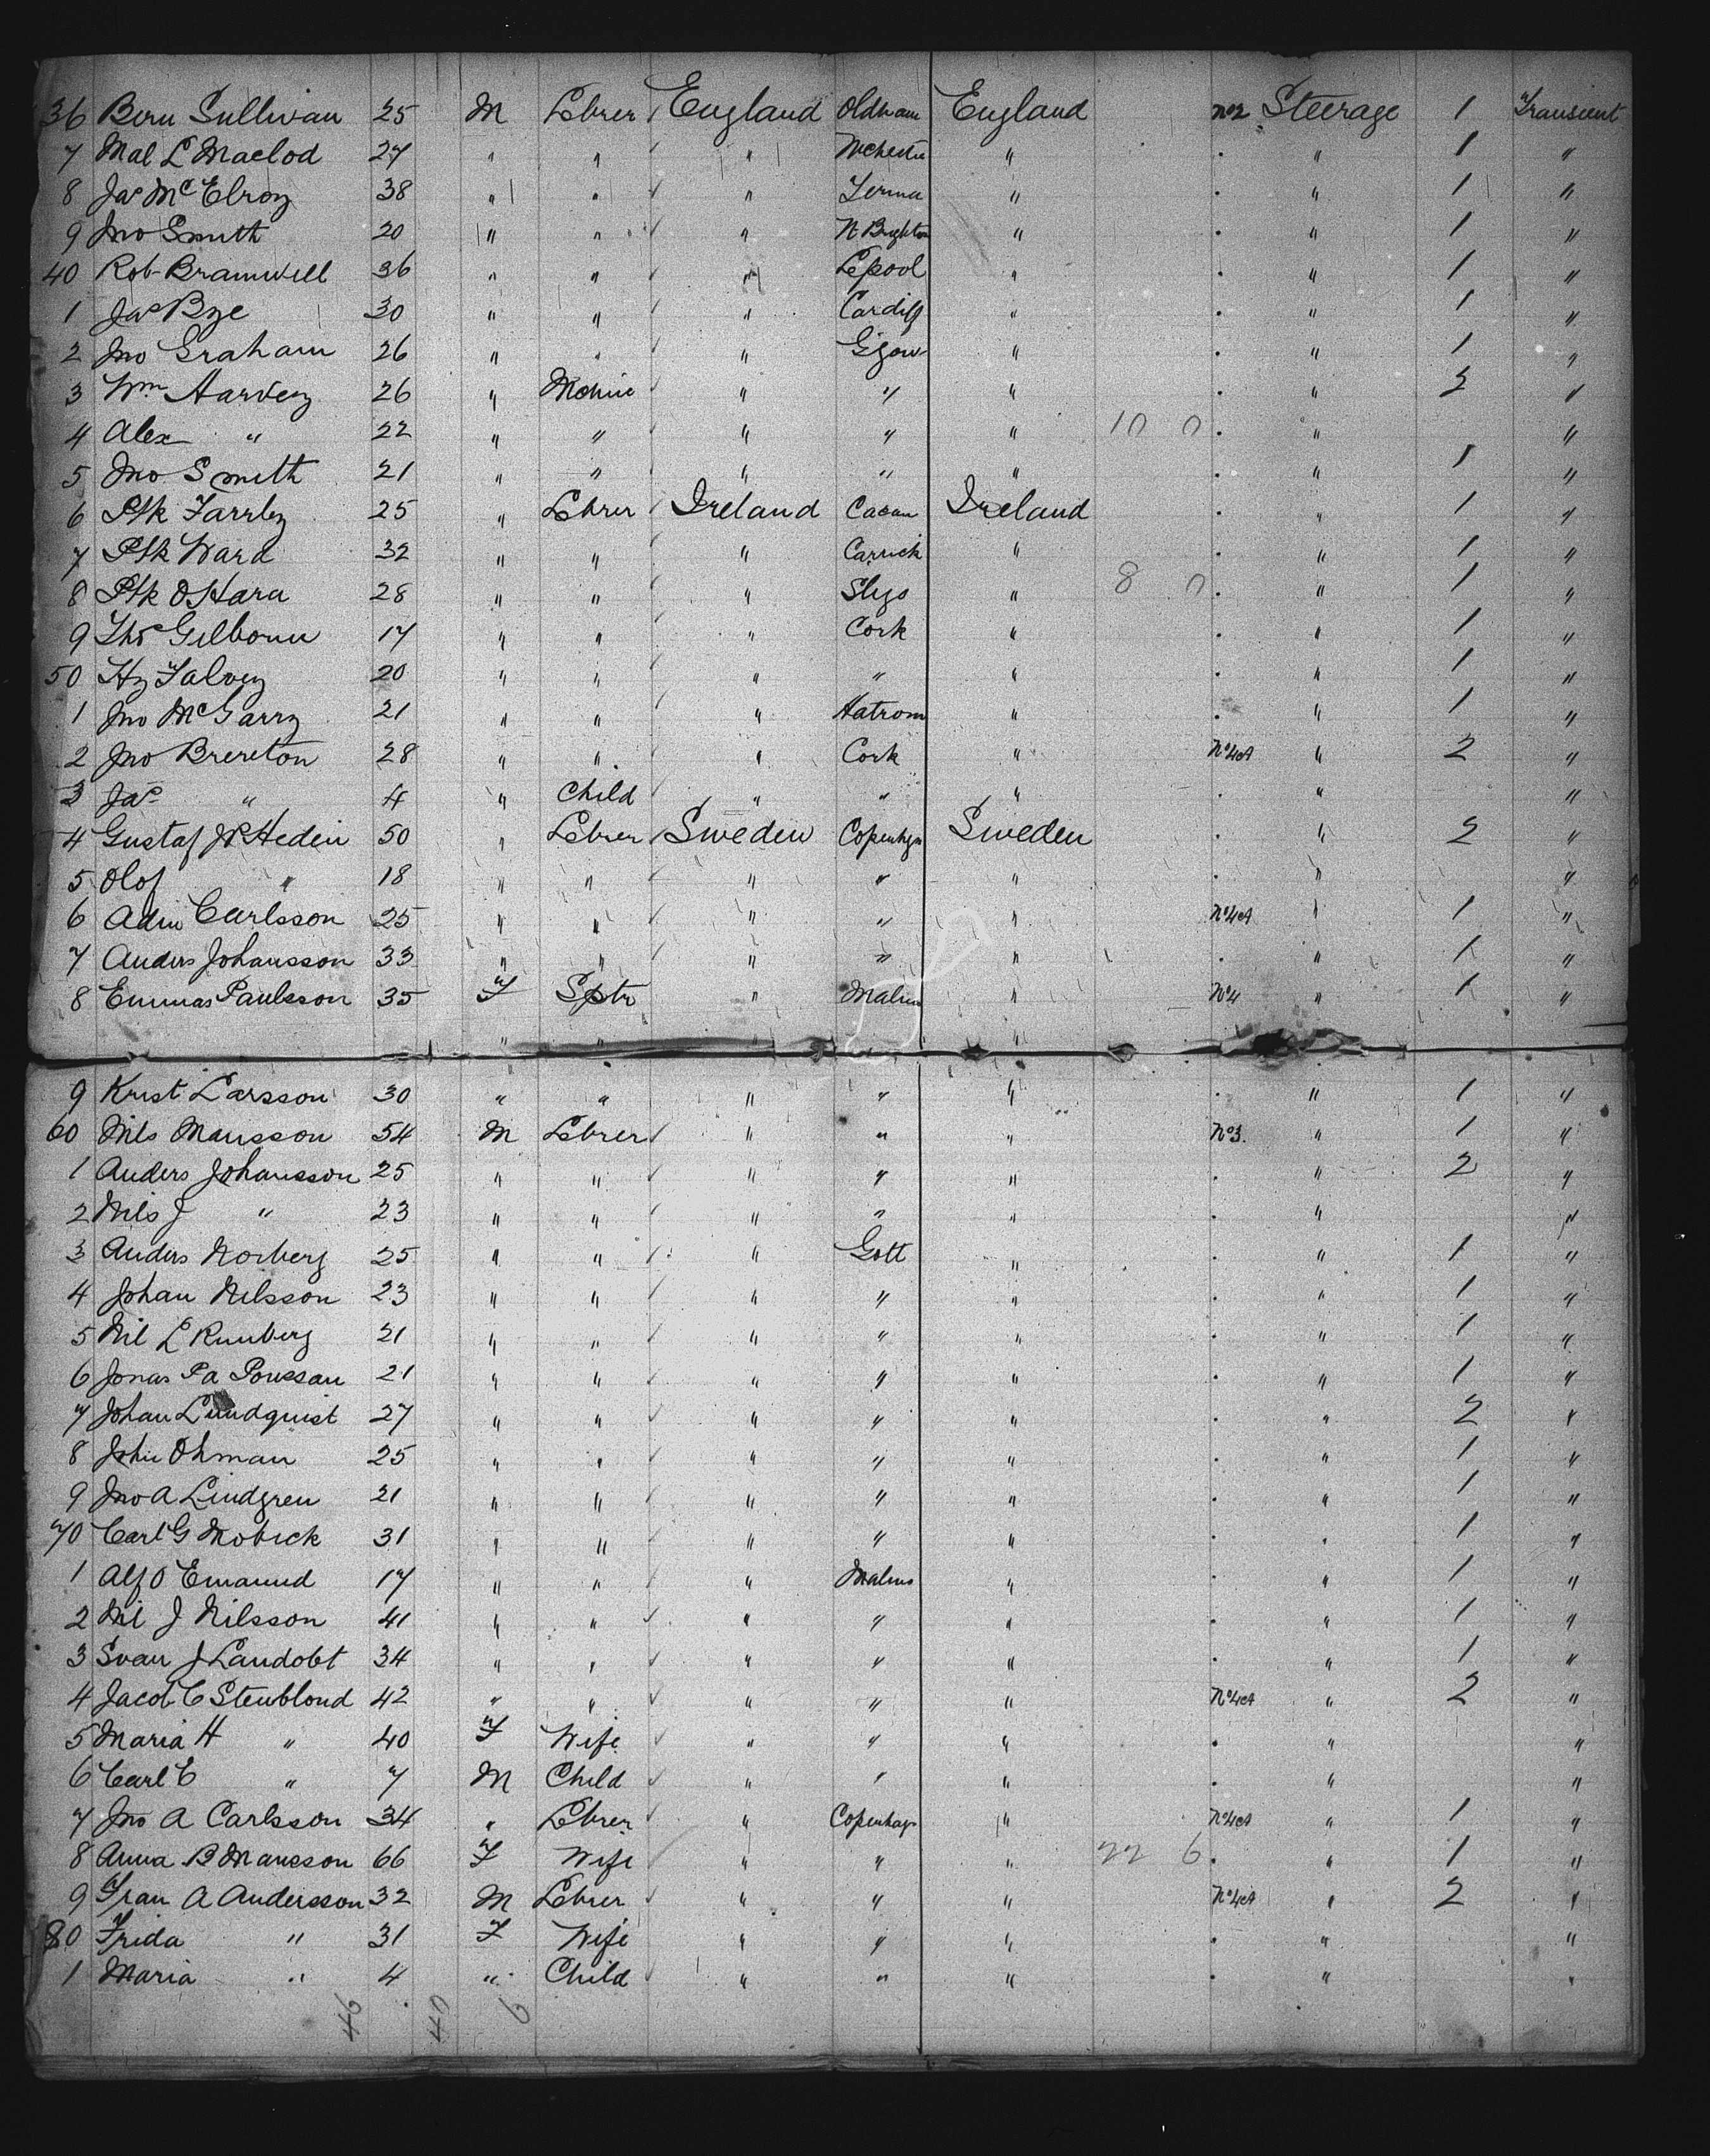 36 Bern Sullivan 25 M Lebrer England Oldham England No2 Steerage 1 Transient
7 Mal L Maclod 27 " " " " " 1 "
8 Jas McElroy 38 " " " " " 1 "
9 Jno Smith 20 " " " N Brighton " " 1 "
40 Rob Bramwell 36 " " " Lpool " " 1 "
1 Jas Bye 30 " " " Cardiff " " 1 "
2 Jno Graham 26 " " " Glgow " " 1 "
3 Wm Harvey 26 " " " " " 2 "
4 Alex " 22 " " " " " 10 0 " "
5 Jno Smith 21 " " " " " " 1 "
6 Ptk Farrley 25 " Lebrer Ireland Cavan Ireland " 1 "
7 Ptk Ward 32 " " " Carrick " " 1 "
8 Ptk OHara 28 " " " Sligo " 8 0 " 1 "
9 Ths Gilbourn 17 " " " Cork " " 1 "
50 Hy Falvey 20 " " " " " " 1 "
1 Jno McGarry 21 " " " Aatrom " " 1 "
2 Jno Brereton 28 " " " Cork " No4A " 2 "
3 Jas " 4 " Child " " " " "
4 Gustaf W Hedin 50 " Lebrer Sweden Copenhgn Sweden " 2 "
5 Olof " 18 " " " " " " "
6 Adin Carlsson 25 " " " " " No4A " 1 "
7 Anders Johansson 33 " " " " " " 1 "
8 Emmas Paulsson 35 F Sptr " Malmo " No4 " 1 "
" " " "
9 Krist Larsson 30 " " " " " " 1 "
60 Nils Mansson 54 M Lebrer " " " No3. " 1 "
1 Anders Johansson 25 " " " " " " 2 "
2 Nils J " 23 " " " " " " "
3 Anders Norberg 25 " " " Gott " " 1 "
4 Johan Nilsson 23 " " " " " " 1 "
5 Nil L Runberg 21 " " " " " " 1 "
6 Jonas Pa Poussan 21 " " " " " " 1 "
7 Johan Lundquist 27 " " " " " " 2 "
8 John Ohman 25 " " " " " " 1 "
9 Jno A Lindgren 21 " " " " " " 1 "
70 Carl G Mobick 31 " " " " " " 1 "
1 Alf O Emanud 17 " " " Malmo " " 1 "
2 Nil J Nilsson 41 " " " " " " 1 "
3 Svan J Landobt 34 " " " " " " 1 "
4 Jacob C Stenblond 42 " " " " " No4A " 2 "
5 Maria H " 40 F Wife " " " " "
6 Carl C " 7 M Child " " " " "
7 Jno A Carlsson 34 " Lebrer " Copenhag " No4A " 1 "
8 Anna B Mansson 66 F Wife " " " 22 6 " 1 "
9 Fran A Andersson 32 M Lebrer " " " No4A " 2 "
80 Frida " 31 F Wife " " " " "
1 Maria " 4 " Child " " " " "
46 40 6